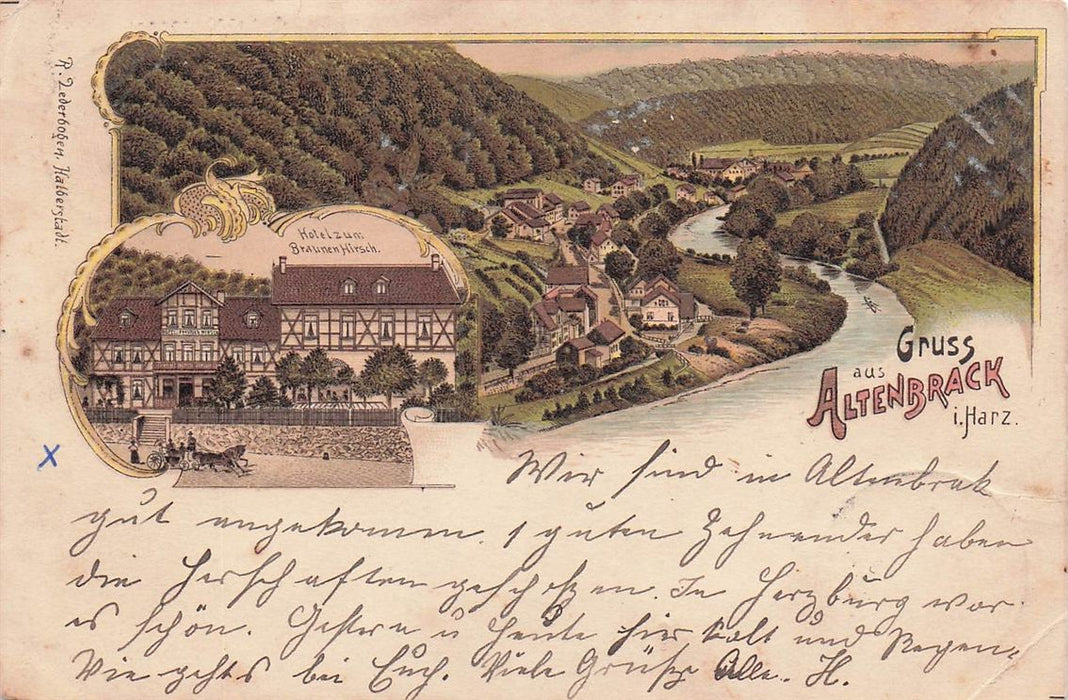 R. Lederbogen, Halberstadt.
Hotel zum
Braunen Hirsch.
Gruss
aus
ALTENBRACK
i. Harz.
X
Wir sind in Altenbrak
gut angekommen. 1 guten Zehnender haben
die Herschaften geschoßen. In Harzburg war
es schön. Gestern u heute hier kalt und Regen.
Wie gehts bei Euch. Viele Grüße Alle. H.